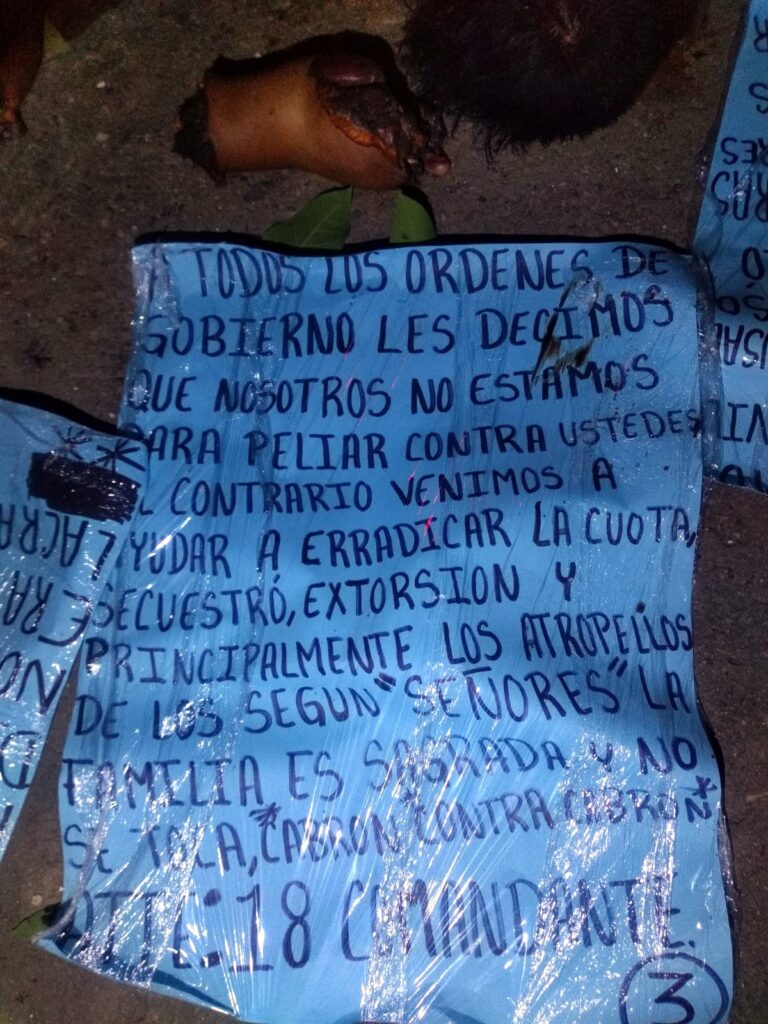 A TODOS LOS ORDENES DE
GOBIERNO LES DECIMOS
QUE NOSOTROS NO ESTAMOS
PARA PELIAR CONTRA USTEDES
L CONTRARIO VENIMOS A
AYUDAR A ERRADICAR LA CUOTA,
SECUESTRÓ, EXTORSION Y
PRINCIPALMENTE LOS ATROPELLOS
DE LOS SEGUN "SEÑORES" LA
FAMILIA ES SAGRADA Y NO
SE TOCA, "CABRON" CONTRA CABRON"
ATTE: 18 COMANDANTE.
3
LACRA
ERA
NO